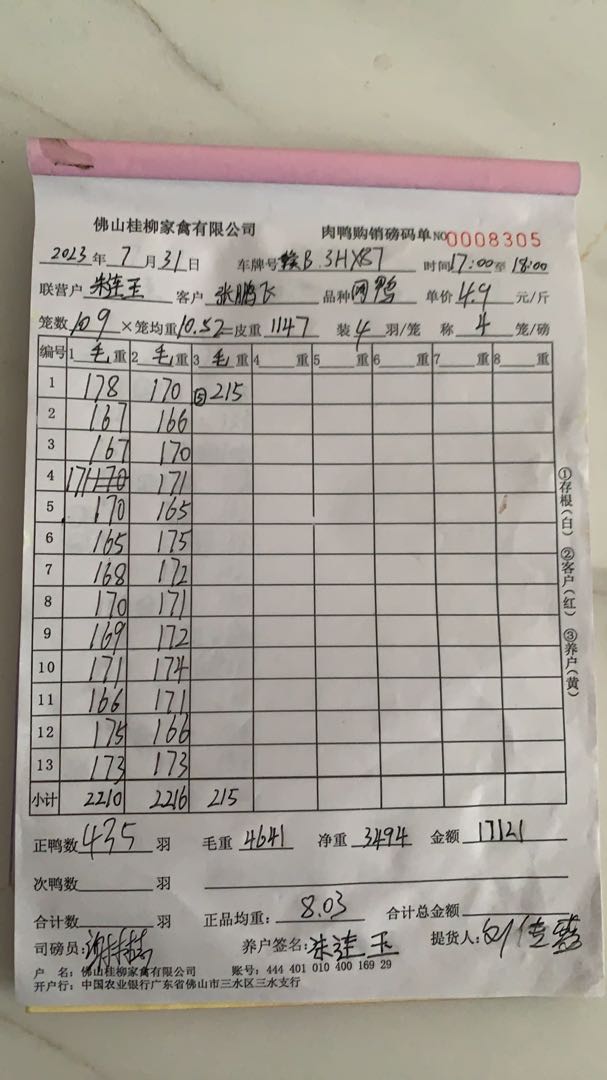 佛山桂柳家禽有限公司 肉鸭购销磅码单 NO 0008305
2023年7月31日 车牌号 B.3HX87 时间17:00至18:00
联营户 朱连玉 客户 张鹏飞 品种 网鸭 单价4.9元/斤
笼数109×笼均重10.52=皮重1147 装4羽/笼 称4笼/磅
编号 1毛重 2毛重 3毛重 4重 5重 6重 7重 8重
1 178 170 ⑤215
2 167 166
3 167 170
4 171 170 171
5 170 165
6 165 175
7 168 172
8 170 171
9 169 172
10 171 174
11 166 171
12 175 166
13 173 173
小计 2210 2216 215
①存根(白) ②客户(红) ③养户(黄)
正鸭数435羽 毛重4641 净重3494 金额17121
次鸭数 羽
合计数 羽 正品均重:8.03 合计总金额
司磅员: 养户签名:朱连玉 提货人:
户 名:佛山桂柳家禽有限公司 账号:444 401 010 400 169 29
开户行:中国农业银行广东省佛山市三水区三水支行